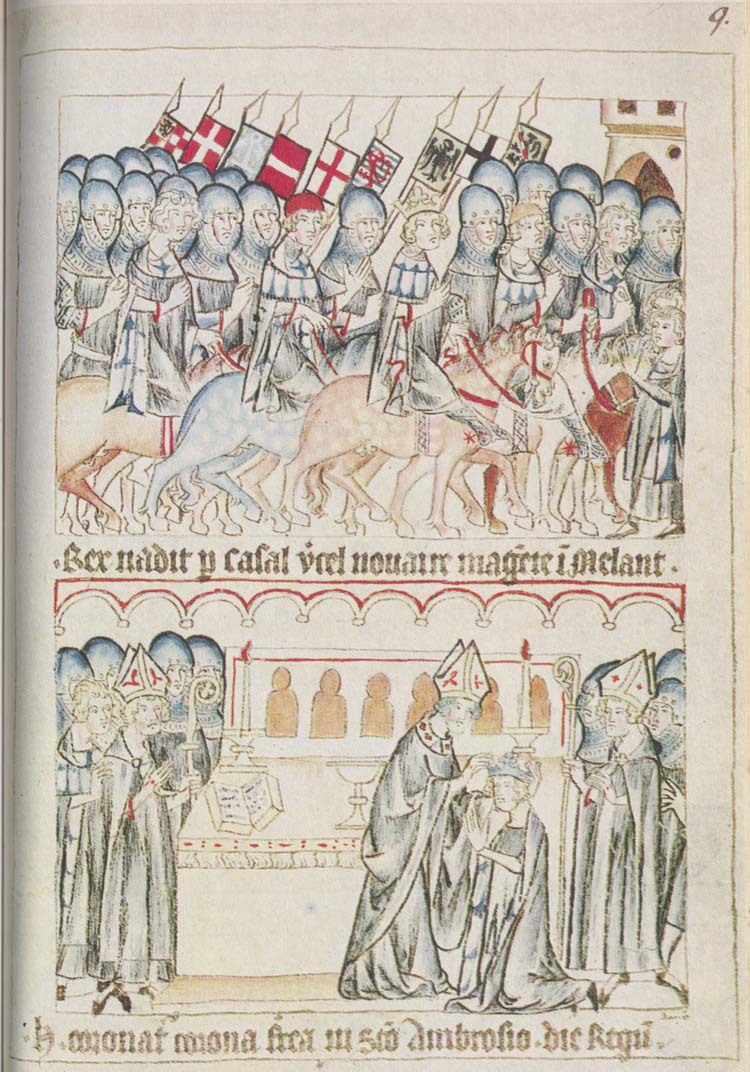 9.
Rex vadit p Casal v'cel novarie magete i Melant.
h. coronat' corona ferea in sco Ambrosio. die Regū.